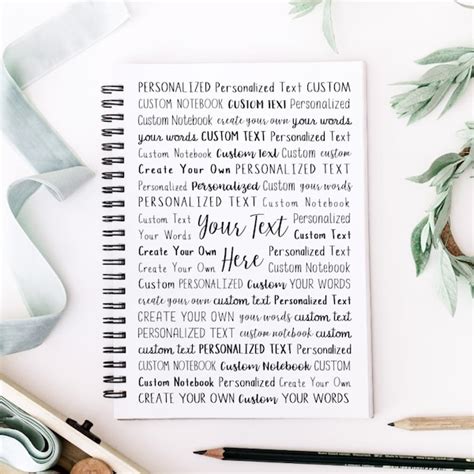 PERSONALIZED Personalized Text CUSTOM
CUSTOM NOTEBOOK CUSTOM TEXT Personalized
Custom Notebook create your own your words
your words CUSTOM TEXT Personalized Text
Custom Notebook Custom text Custom Words
Create Your Own Personalized Text CUSTOM
Personalized Personalized Custom your words
Custom Text Your Text Personalized
Your Words Custom Text
Create Your Own Here Personalized Text
Create Your Own Custom Notebook
Personalized Custom YOUR WORDS
create your own custom text Personalized Text
CREATE YOUR OWN your words Custom
PERSONALIZED TEXT custom notebook custom
custom text PERSONALIZED TEXT Custom Text
CUSTOM NOTEBOOK Custom Notebook CUSTOM
Custom Notebook Personalized Create Your Own
CREATE YOUR OWN Custom YOUR WORDS